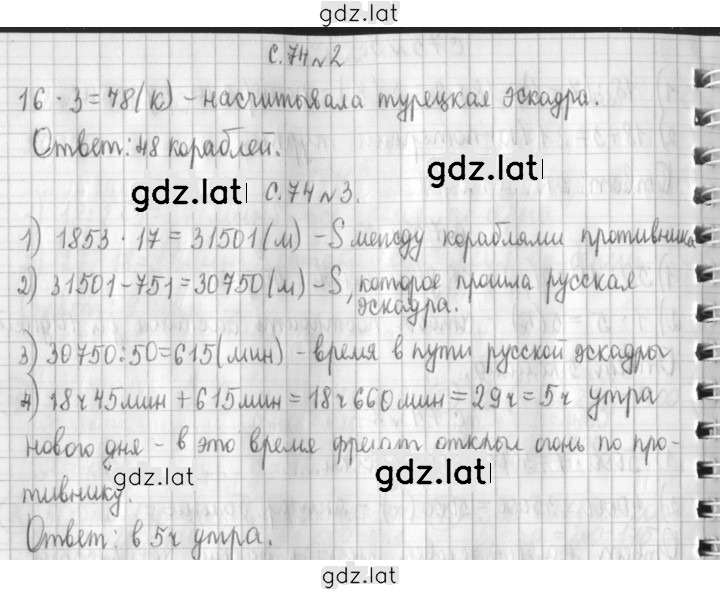 gdz.lat
с.74 №2
16 · 3 = 48 (к) – насчитывала турецкая эскадра.
Ответ: 48 кораблей.
gdz.lat
gdz.lat
с.74 №3.
1) 1853 · 17 = 31501 (м) – S между кораблями противника
2) 31501 – 751 = 30750 (м) – S, которое прошла русская
эскадра.
3) 30750 : 50 = 615 (мин) – время в пути русской эскадры
4) 18ч 45мин + 615мин = 18ч 660мин = 29ч = 5ч утра
нового дня – в это время фрегат открыл огонь по про-
тивнику.
gdz.lat
gdz.lat
Ответ: в 5ч утра.
gdz.lat